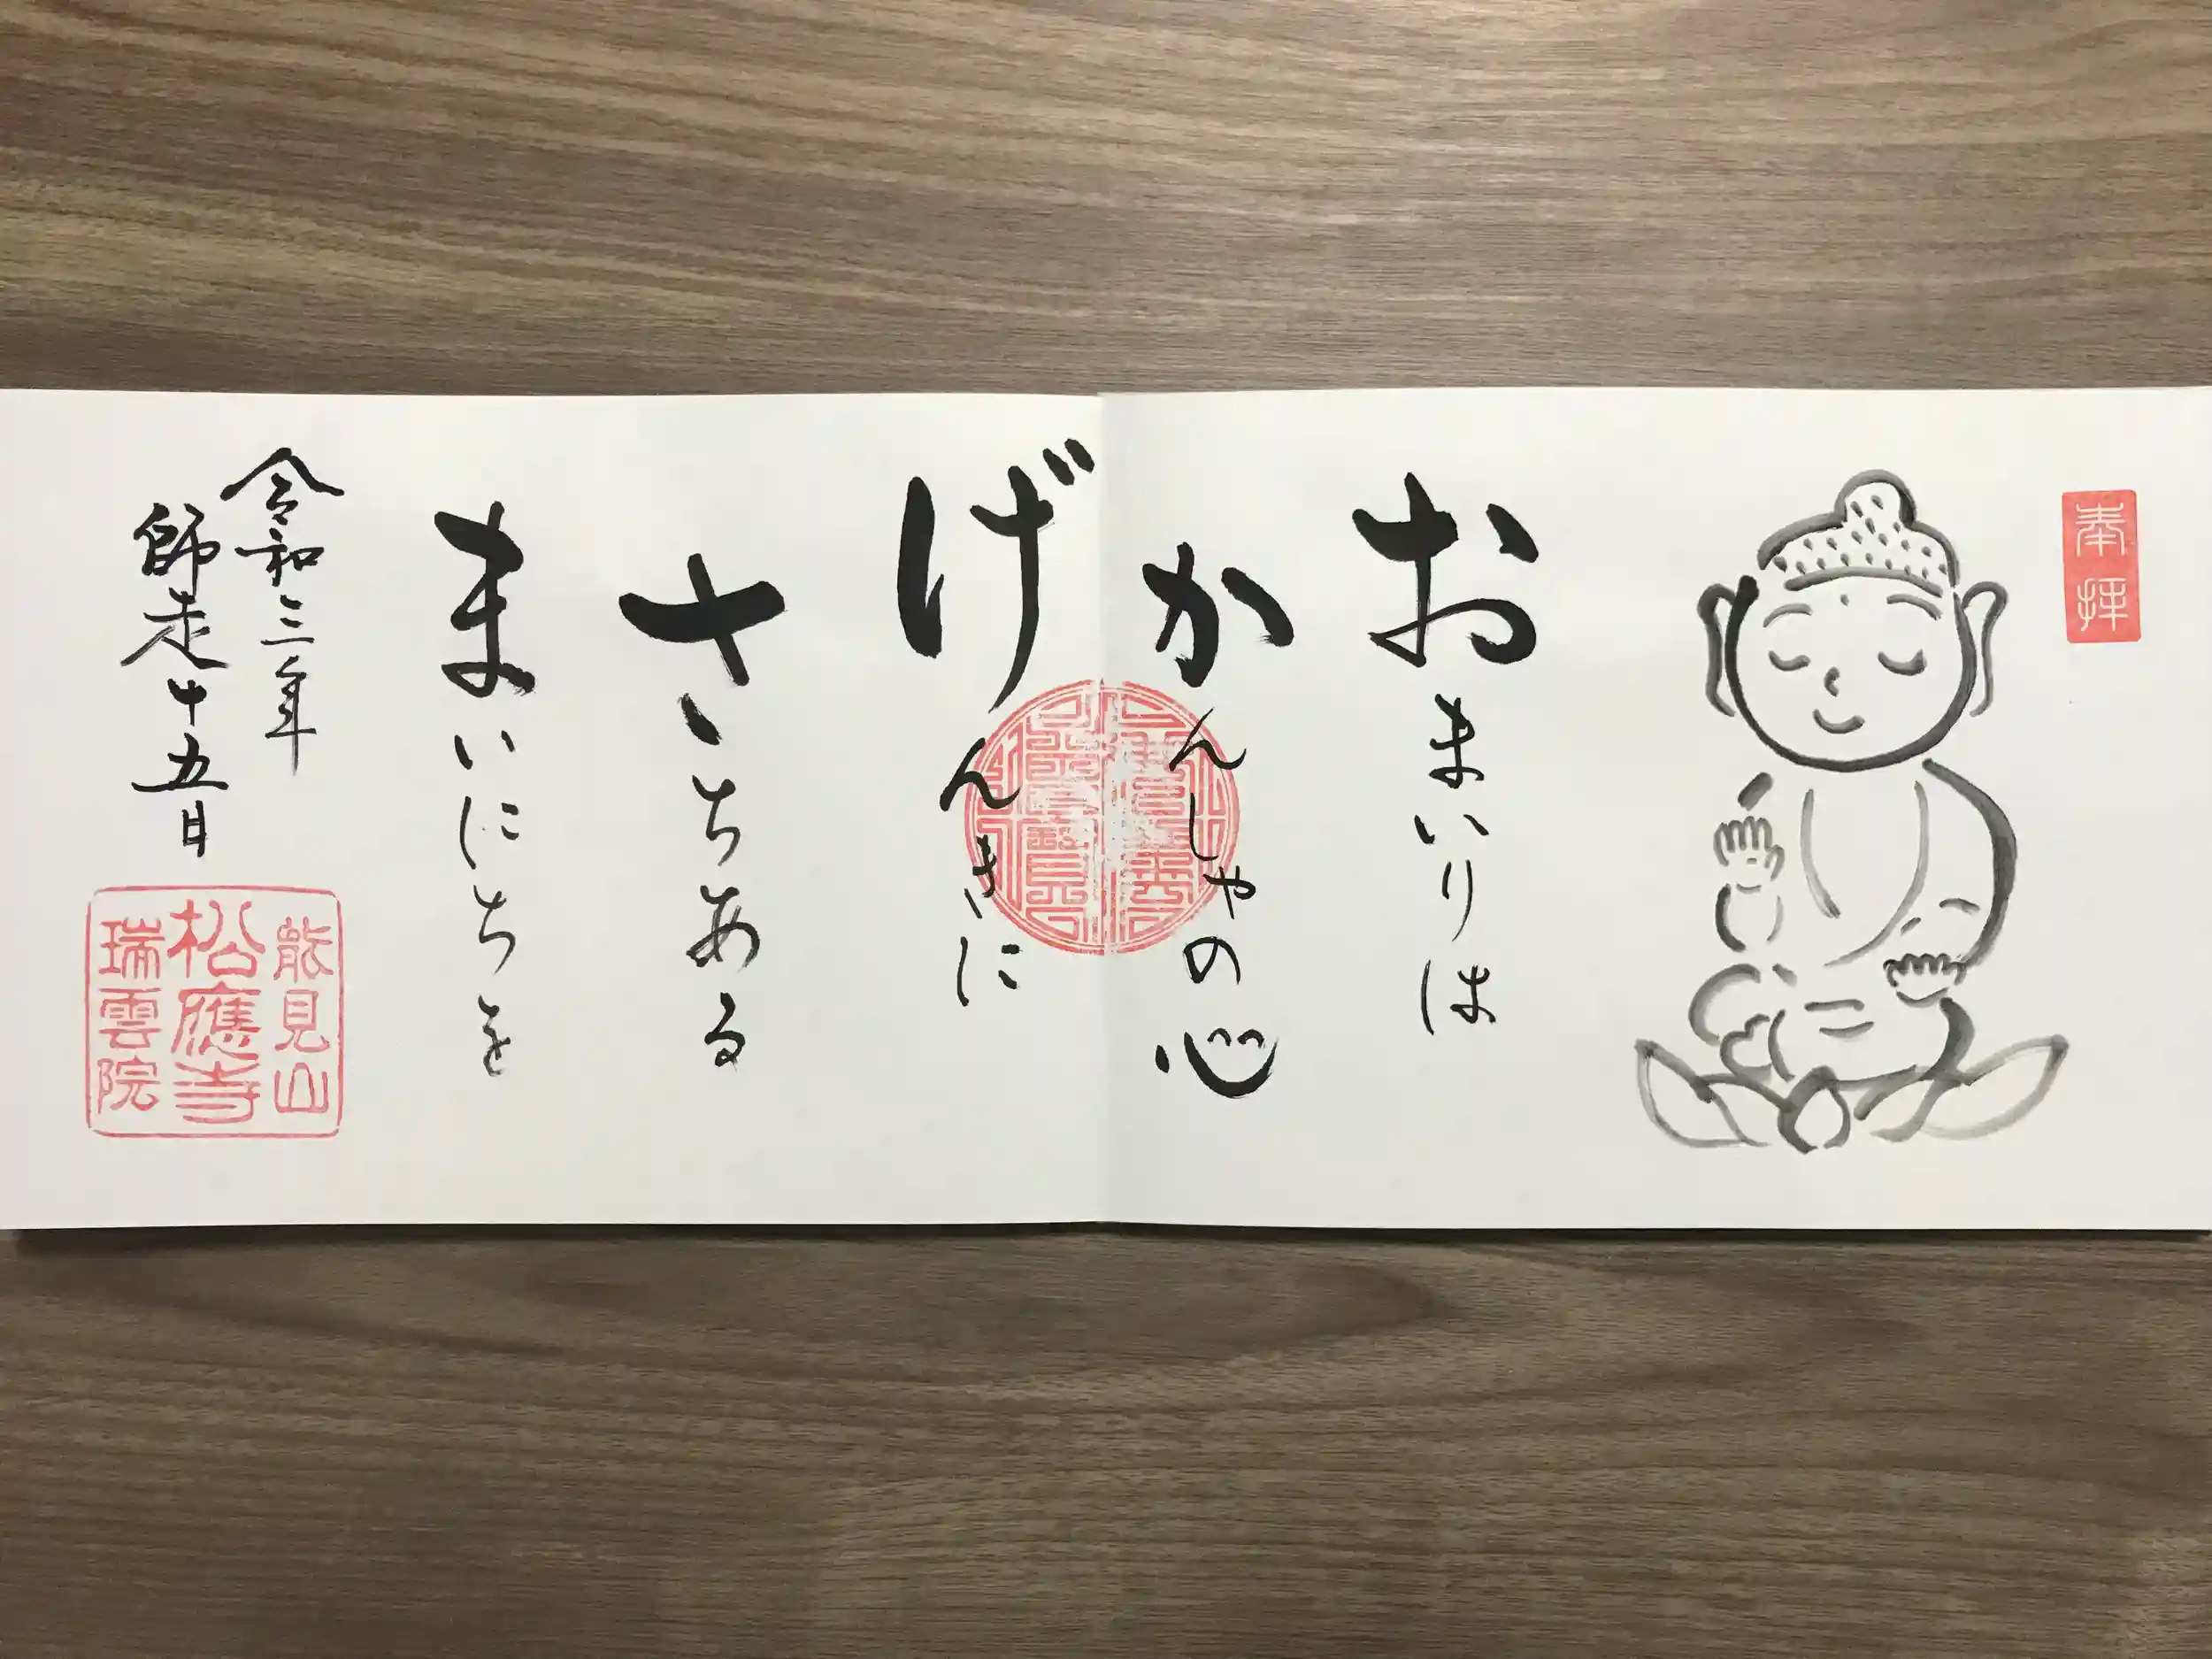 奉拝
おまいりは
かんしゃの心
げんきに
さいちある
まいにちを
令和三年
師走十五日
能見山
松應寺
瑞雲院